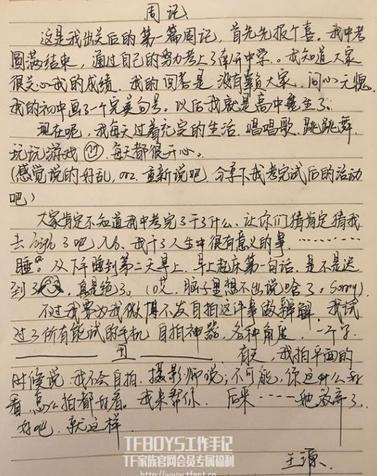 周记
这是我出关后的第一篇周记，首先先报个喜。我中考
圆满结束，通过自己的努力考上了南开中学。我知道大家
很关心我的成绩，我的回答是没有辜负大家，问心无愧，
我的初中画了个完美句号，以后我就是高中生了。
现在呢，我每天过着充实的生活，唱唱歌，跳跳舞
玩玩游戏 每天都很开心。
(感觉说的好乱，orz. 重新说吧，分享下我考完试后的活动
吧)
大家肯定不知道我中考完了干了什么，让你们猜肯定猜我
去 了吧，no. 我干了人生中很有意义的事………
睡。从下午睡到第二天早上，早上起床第一句话，是不是迟
到 ，真是绝了。(哎，脑子里想不出说啥了，Sorry)
不过我要为我微博不发自拍这件事做辩解，我试
过了所有能试的手机，自拍神器，各种角度，一个字
丑 有天，我拍平面的
时候说，我不会自拍，摄影师说：不可能，你这什么
看，怎么拍都好看，我来帮你，后来……她放弃了
好吧，就这样
王源
TFBOYS工作手记
TF家族官网会员专属福利